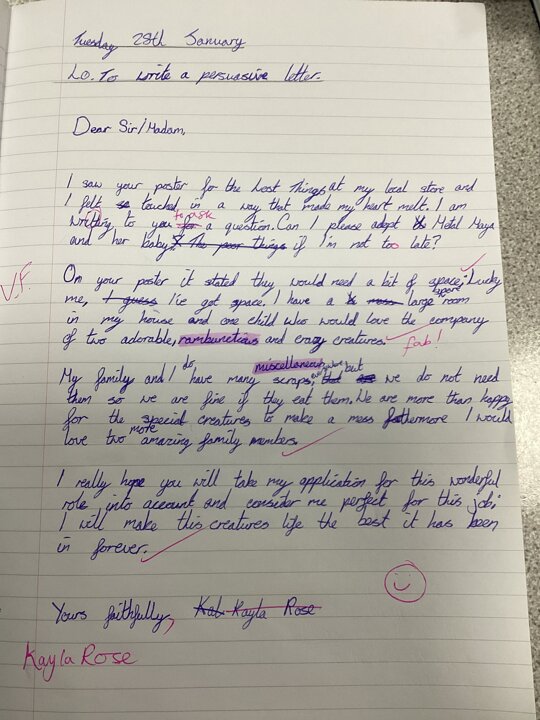 Tuesday 28th January
LO. To write a persuasive letter.
Dear Sir/Madam,
I saw your poster for the Lost Things at my local store and
I felt so touched in a way that made my heart melt. I am
to ask
writing to you for a question. Can I please adopt Metal Maya
and her baby? The poor things if I'm not too late?
V.F.
On your poster it stated they would need a bit of space; Lucky
spare
me, I guess I've got space. I have a large room
in my house and one child who would love the company
of two adorable, rambunctious and crazy creatures.
fab!
do miscellaneous but
My family and I have many scraps, we do not need
them so we are fine if they eat them. We are more than happy
for the special creatures to make a mess futhermore I would
more
love two amazing family members.
I really hope you will take my application for this wonderful
role into account and consider me perfect for this job;
I will make this creatures life the best it has been
in forever.
Yours faithfully, Kal Kayla Rose
Kayla Rose